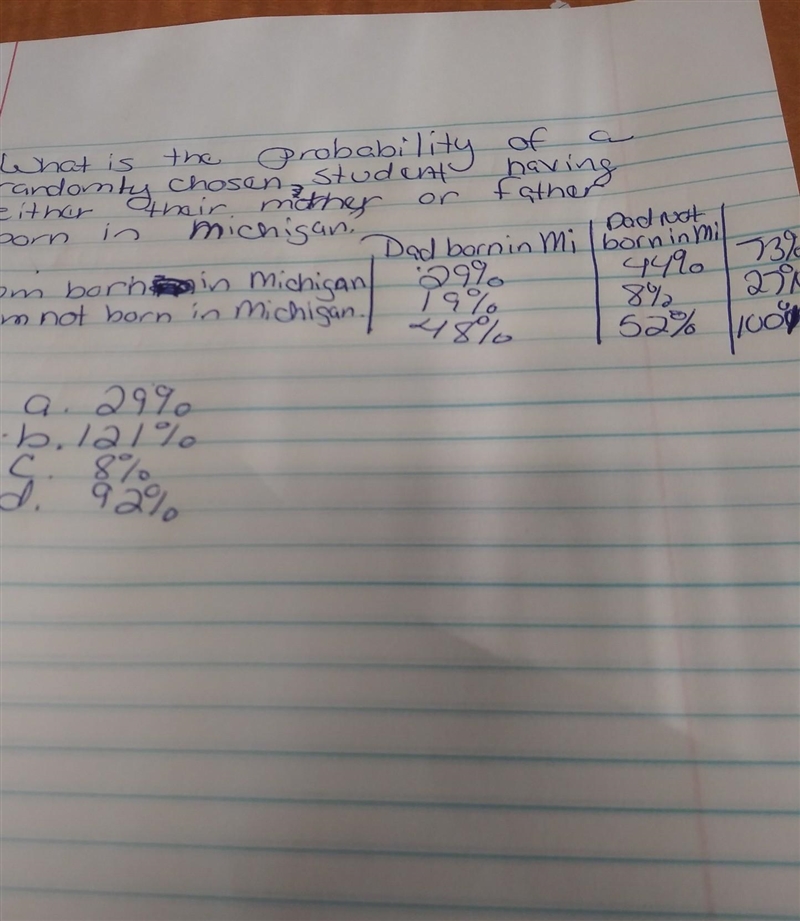 What is the Probability of a
randomly chosen student having
either their mother or father
born in michigan.
Dad born in Mi Dad not born in Mi
om born in Michigan 29% 44% 73%
m not born in Michigan. 19% 8% 27%
48% 52% 100%
a. 29%
b. 121%
c. 8%
d. 92%